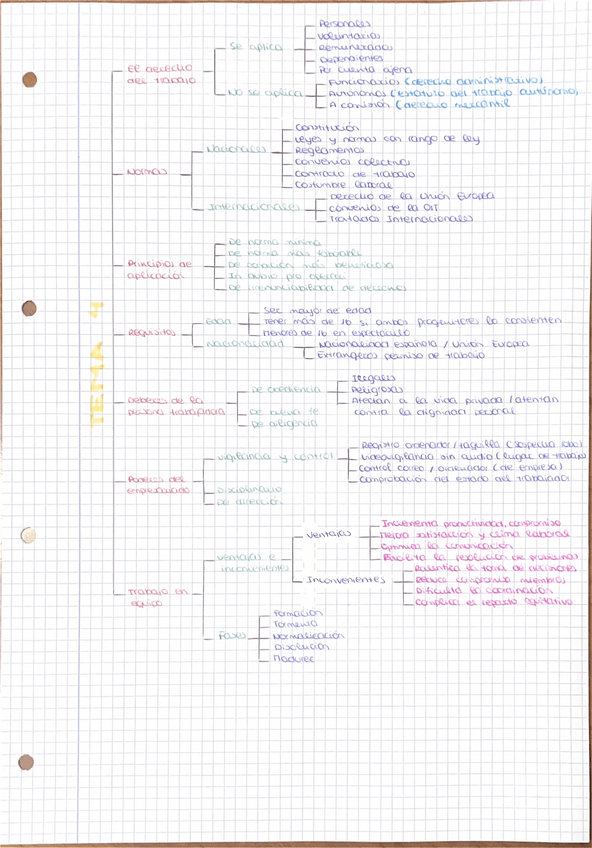 TEMA 4
El derecho
del trabajo
Se aplica
Personales
Voluntarias
Remuneradas
Dependientes
Por cuenta ajena
No se aplica
Funcionarios (derecho administrativo)
Autónomos (estatuto del trabajo autónomo)
A comisión (derecho mercantil
Normas
Nacionales
Constitución
Leyes y normas con rango de ley
Reglamentos
Convenios colectivos
Contrato de trabajo
Costumbre laboral
Internacionales
Derecho de la Unión Europea
Convenios de la OIT
Tratados Internacionales
Principios de
aplicación
De norma mínima
De norma más favorable
De condición más beneficiosa
In dubio pro operario
De irrenunciabilidad de derechos
Requisitos
Edad
Ser mayor de edad
Tener más de 16 si ambos progenitores lo consienten
Menores de 16 en espectáculo
Nacionalidad
Nacionalidad española / Unión Europea
Extrangeros permiso de trabajo
Deberes de la
persona trabajadora
De obediencia
Ilegales
Peligrosas
Afectan a la vida privada / atentan
contra la dignidad personal
De buena fe
De diligencia
Poderes del
empresariado
Vigilancia y control
Registro ordenador / taquilla (sospecha robo)
Videovigilancia sin audio (lugar de trabajo)
Control correo / ordenador (de empresa)
Comprobación del estado del trabajador
Disciplinario
De dirección
Trabajo en
equipo
Ventajas e
inconvenientes
Ventajas
Incrementa productividad, compromiso
Mejora satisfacción y clima laboral
Optimiza la comunicación
Facilita la resolución de problemas
Inconvenientes
Ralentiza la toma de decisiones
Reduce compromiso miembros
Dificulta la coordinación
Complica el reparto equitativo
Fases
Formación
Tormenta
Normalización
Disolución
Madurez